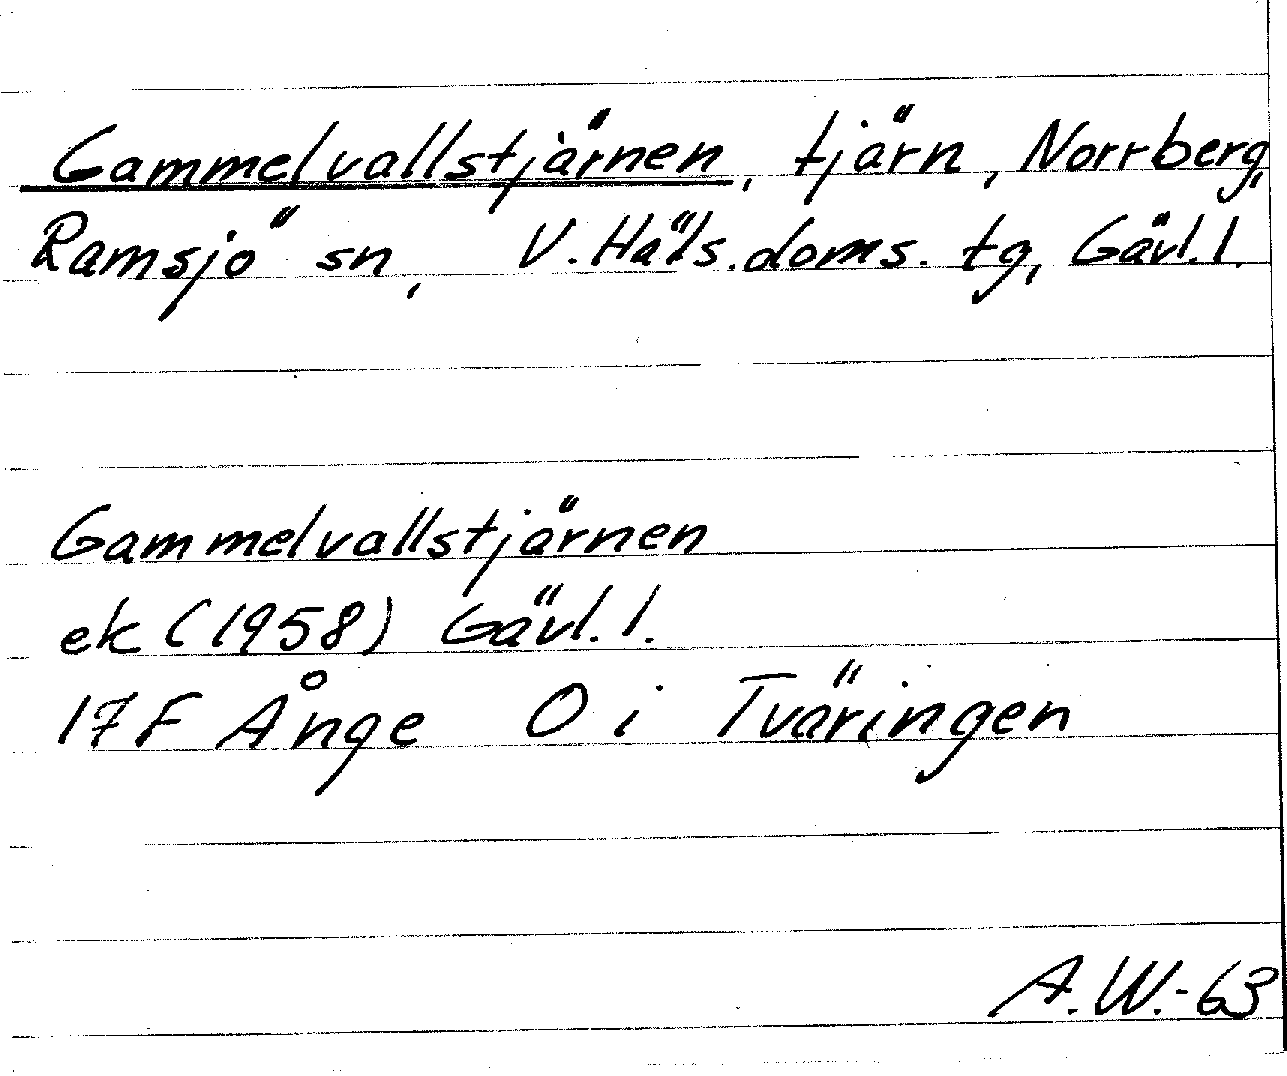 Gammelvallstjärnen, tjärn, Norrberg,
Ramsjö sn, V. Häls. doms. tg, Gävl. l.
Gammelvallstjärnen
ek (1958) Gävl. l.
17F Ånge O i Tväringen
A.W.-63